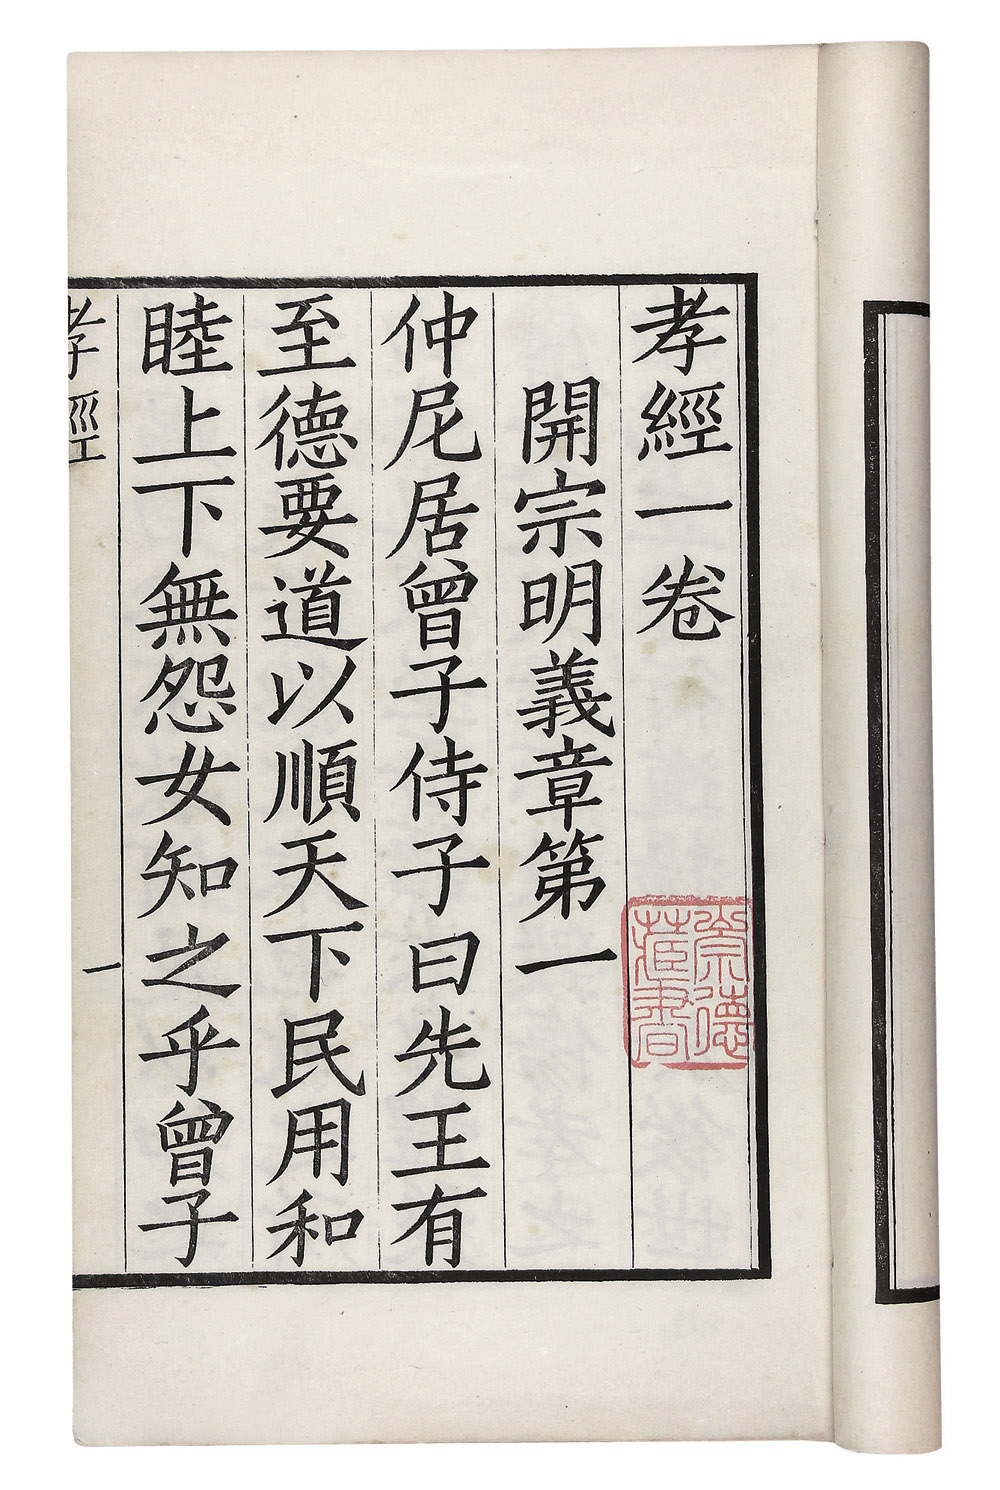 孝經一卷
開宗明義章第一
仲尼居曾子侍子曰先王有
至德要道以順天下民用和
睦上下無怨女知之乎曾子
孝經
一
崇德
藏書